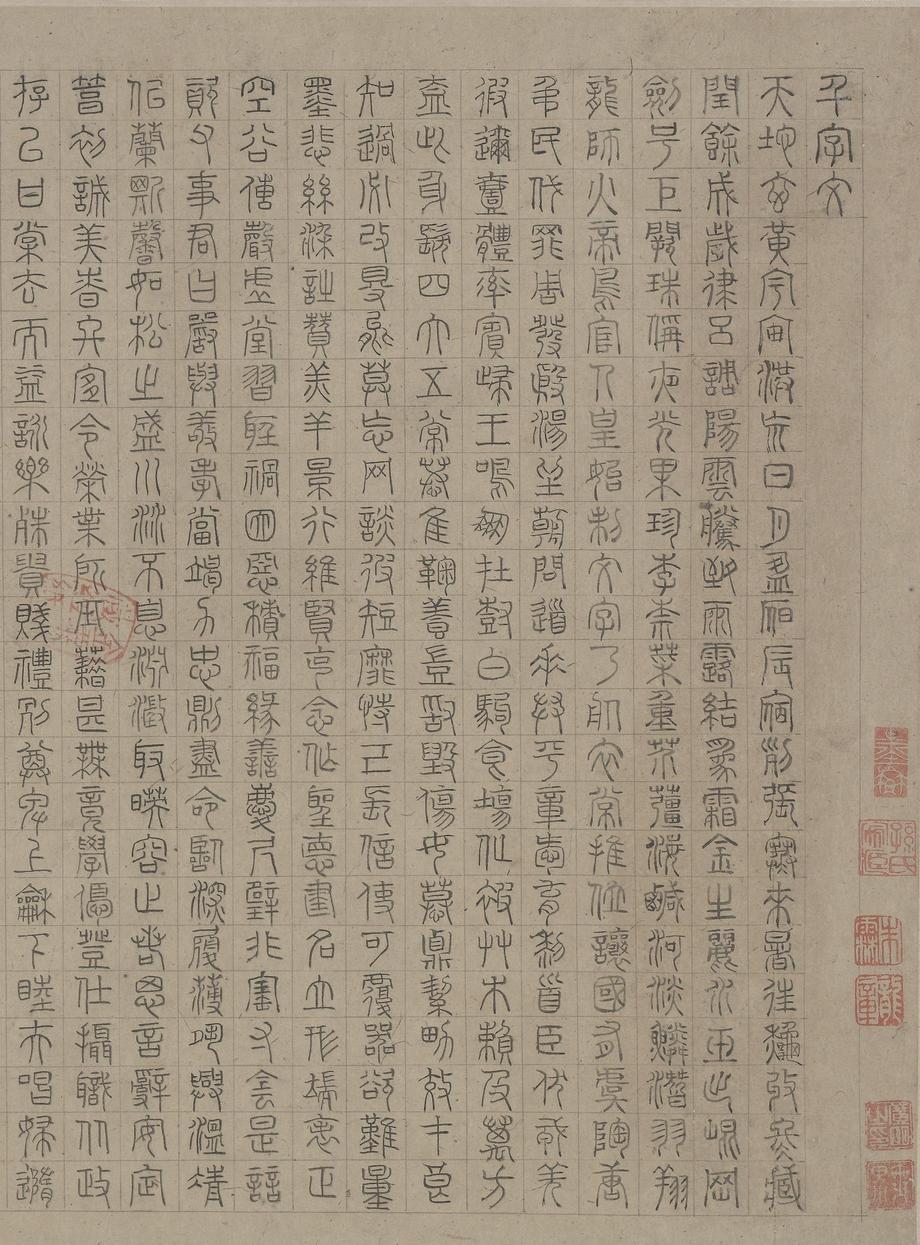 千字文
天地玄黃宇宙洪荒日月盈昃辰宿列張寒來暑往秋收冬藏
閏餘成歲律呂調陽雲騰致雨露結爲霜金生麗水玉出崐岡
劍号巨闕珠稱夜光果珍李柰菜重芥薑海鹹河淡鱗潛羽翔
龍師火帝鳥官人皇始制文字乃服衣裳推位讓國有虞陶唐
弔民伐罪周發殷湯坐朝問道垂拱平章愛育黎首臣伏戎羌
遐邇壹體率賓歸王鳴鳳在樹白駒食場化被草木賴及萬方
蓋此身髮四大五常恭惟鞠養豈敢毀傷女慕貞絜男效才良
知過必改得能莫忘罔談彼短靡恃己長信使可覆器欲難量
墨悲絲染詩贊羔羊景行維賢克念作聖德建名立形端表正
空谷傳聲虛堂習聽禍因惡積福緣善慶尺璧非寶寸陰是競
資父事君曰嚴與敬孝當竭力忠則盡命臨深履薄夙興溫凊
似蘭斯馨如松之盛川流不息淵澄取映容止若思言辭安定
篤初誠美慎終宜令榮業所基藉甚無竟學優登仕攝職從政
存以甘棠去而益詠樂殊貴賤禮別尊卑上和下睦夫唱婦隨